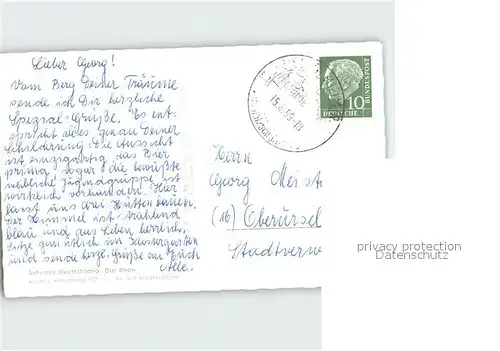 Lieber Georg!
Vom Berg Deiner Träume
sende ich Dir herzliche
Spezial-Grüße. Es ent-
spricht alles genau Deiner
Schilderung: Die Aussicht
ist einzigartig, das Bier
prima, sogar die bewußte
weibliche Jugendgruppe ist
wirklich vorhanden. Hier
lasst uns drei Hütten bauen.
Der Himmel ist strahlend
blau und das Leben herrlich.
Sitze gemütlich im Klostergarten
und sende herzl. Grüße an Euch
Alle.
Die Rhön
10
DEUTSCHE
BUNDESPOST
Herrn
Georg Meist
(16) Oberursel
Stadtverw
privacy protection
Datenschutz